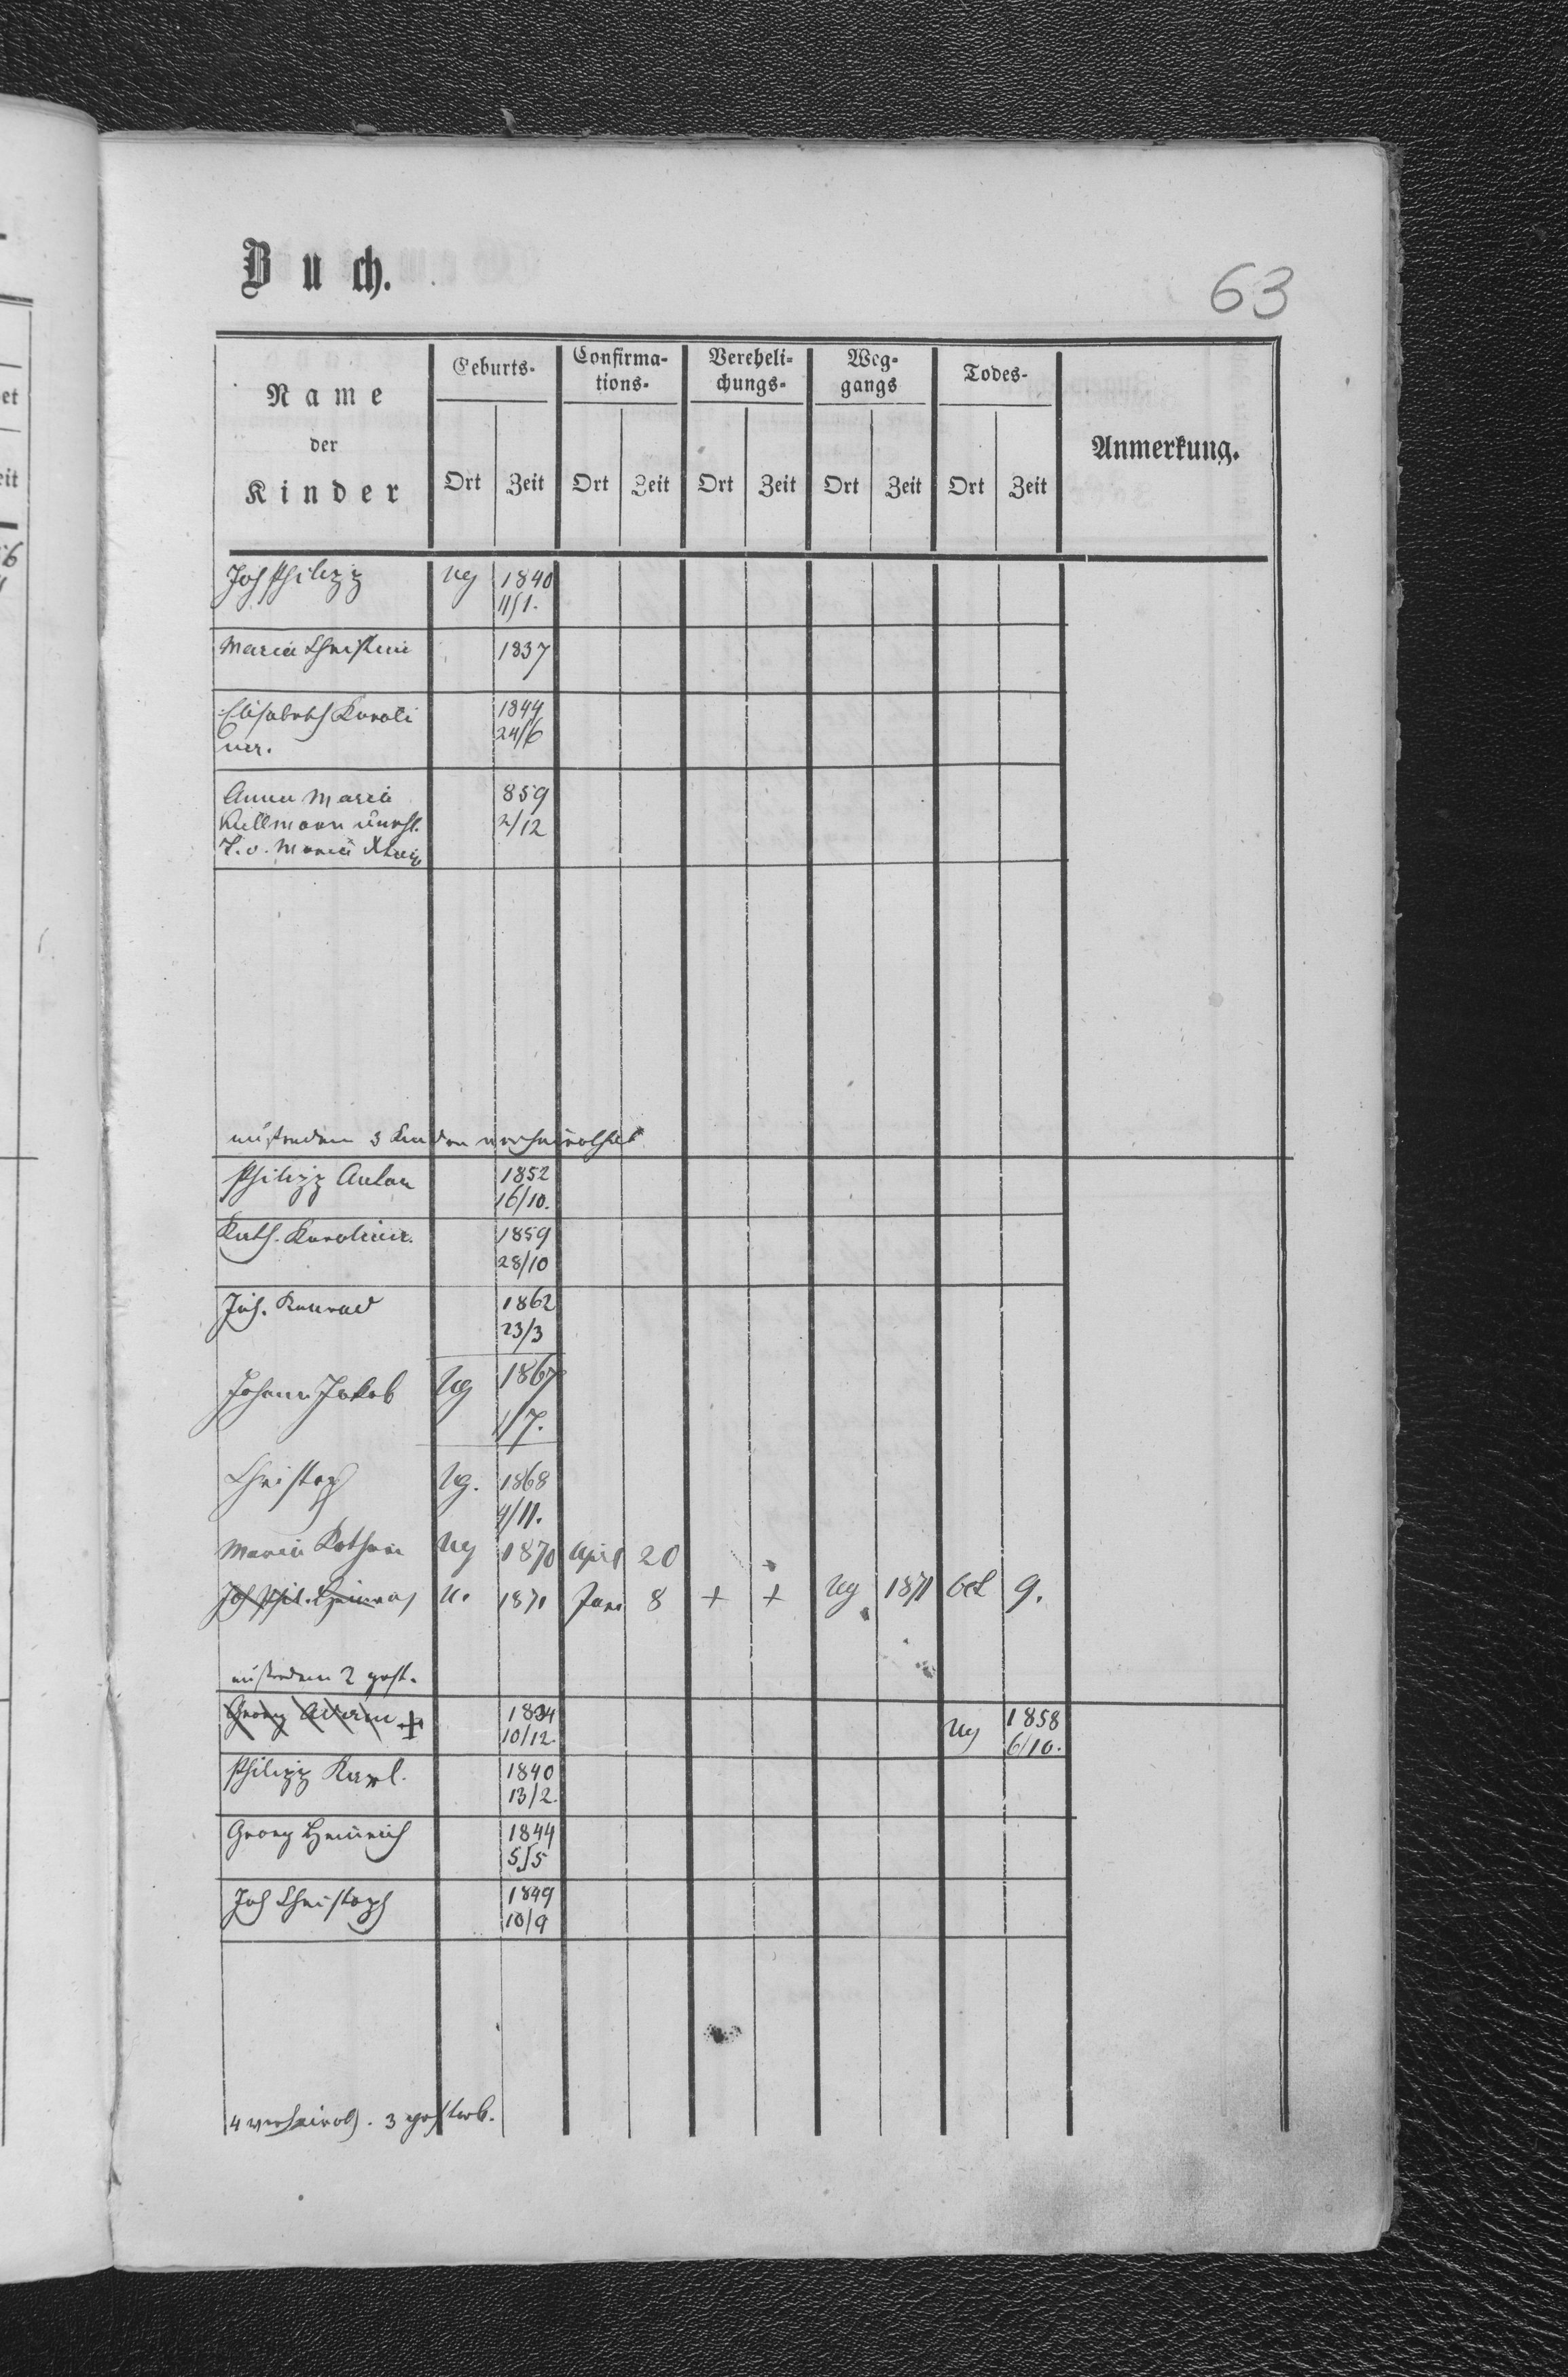 Buch.
63
Name der Kinder
Geburts- Confirma-tions- Verehelichungs- Weg-gangs Todes- Anmerkung.
Ort Zeit Ort Zeit Ort Zeit Ort Zeit Ort Zeit
Joh Philipp Ug 1840
11/1.
Maria Christine 1837
Elisabeth Karoli 1844
ne. 24/6
Anna Maria 859
Kellmann unehl. 2/12
T. v. Maria
außerdem 3 Kinder verheirathet
Philipp Anton 1852
16/10.
Kath. Karoline. 1859
28/10
Joh. Konrad 1862
23/3
Johann Jakob Ug 1867
1/7.
Christoph Ug. 1868
4/11.
Maria Kathar Ug 1870 April 20
Joh Phil. Heinrich U. 1871 Juni 8 + + Ug 1871 Oct 9.
außerdem 2 gest.
Georg Adam + 1834 Ug 1858
10/12. 6/10.
Philipp Karl. 1840
13/2.
Georg Heinrich 1844
5/5
Joh Christoph 1849
10/9
4 verheirath. 3 gestorb.